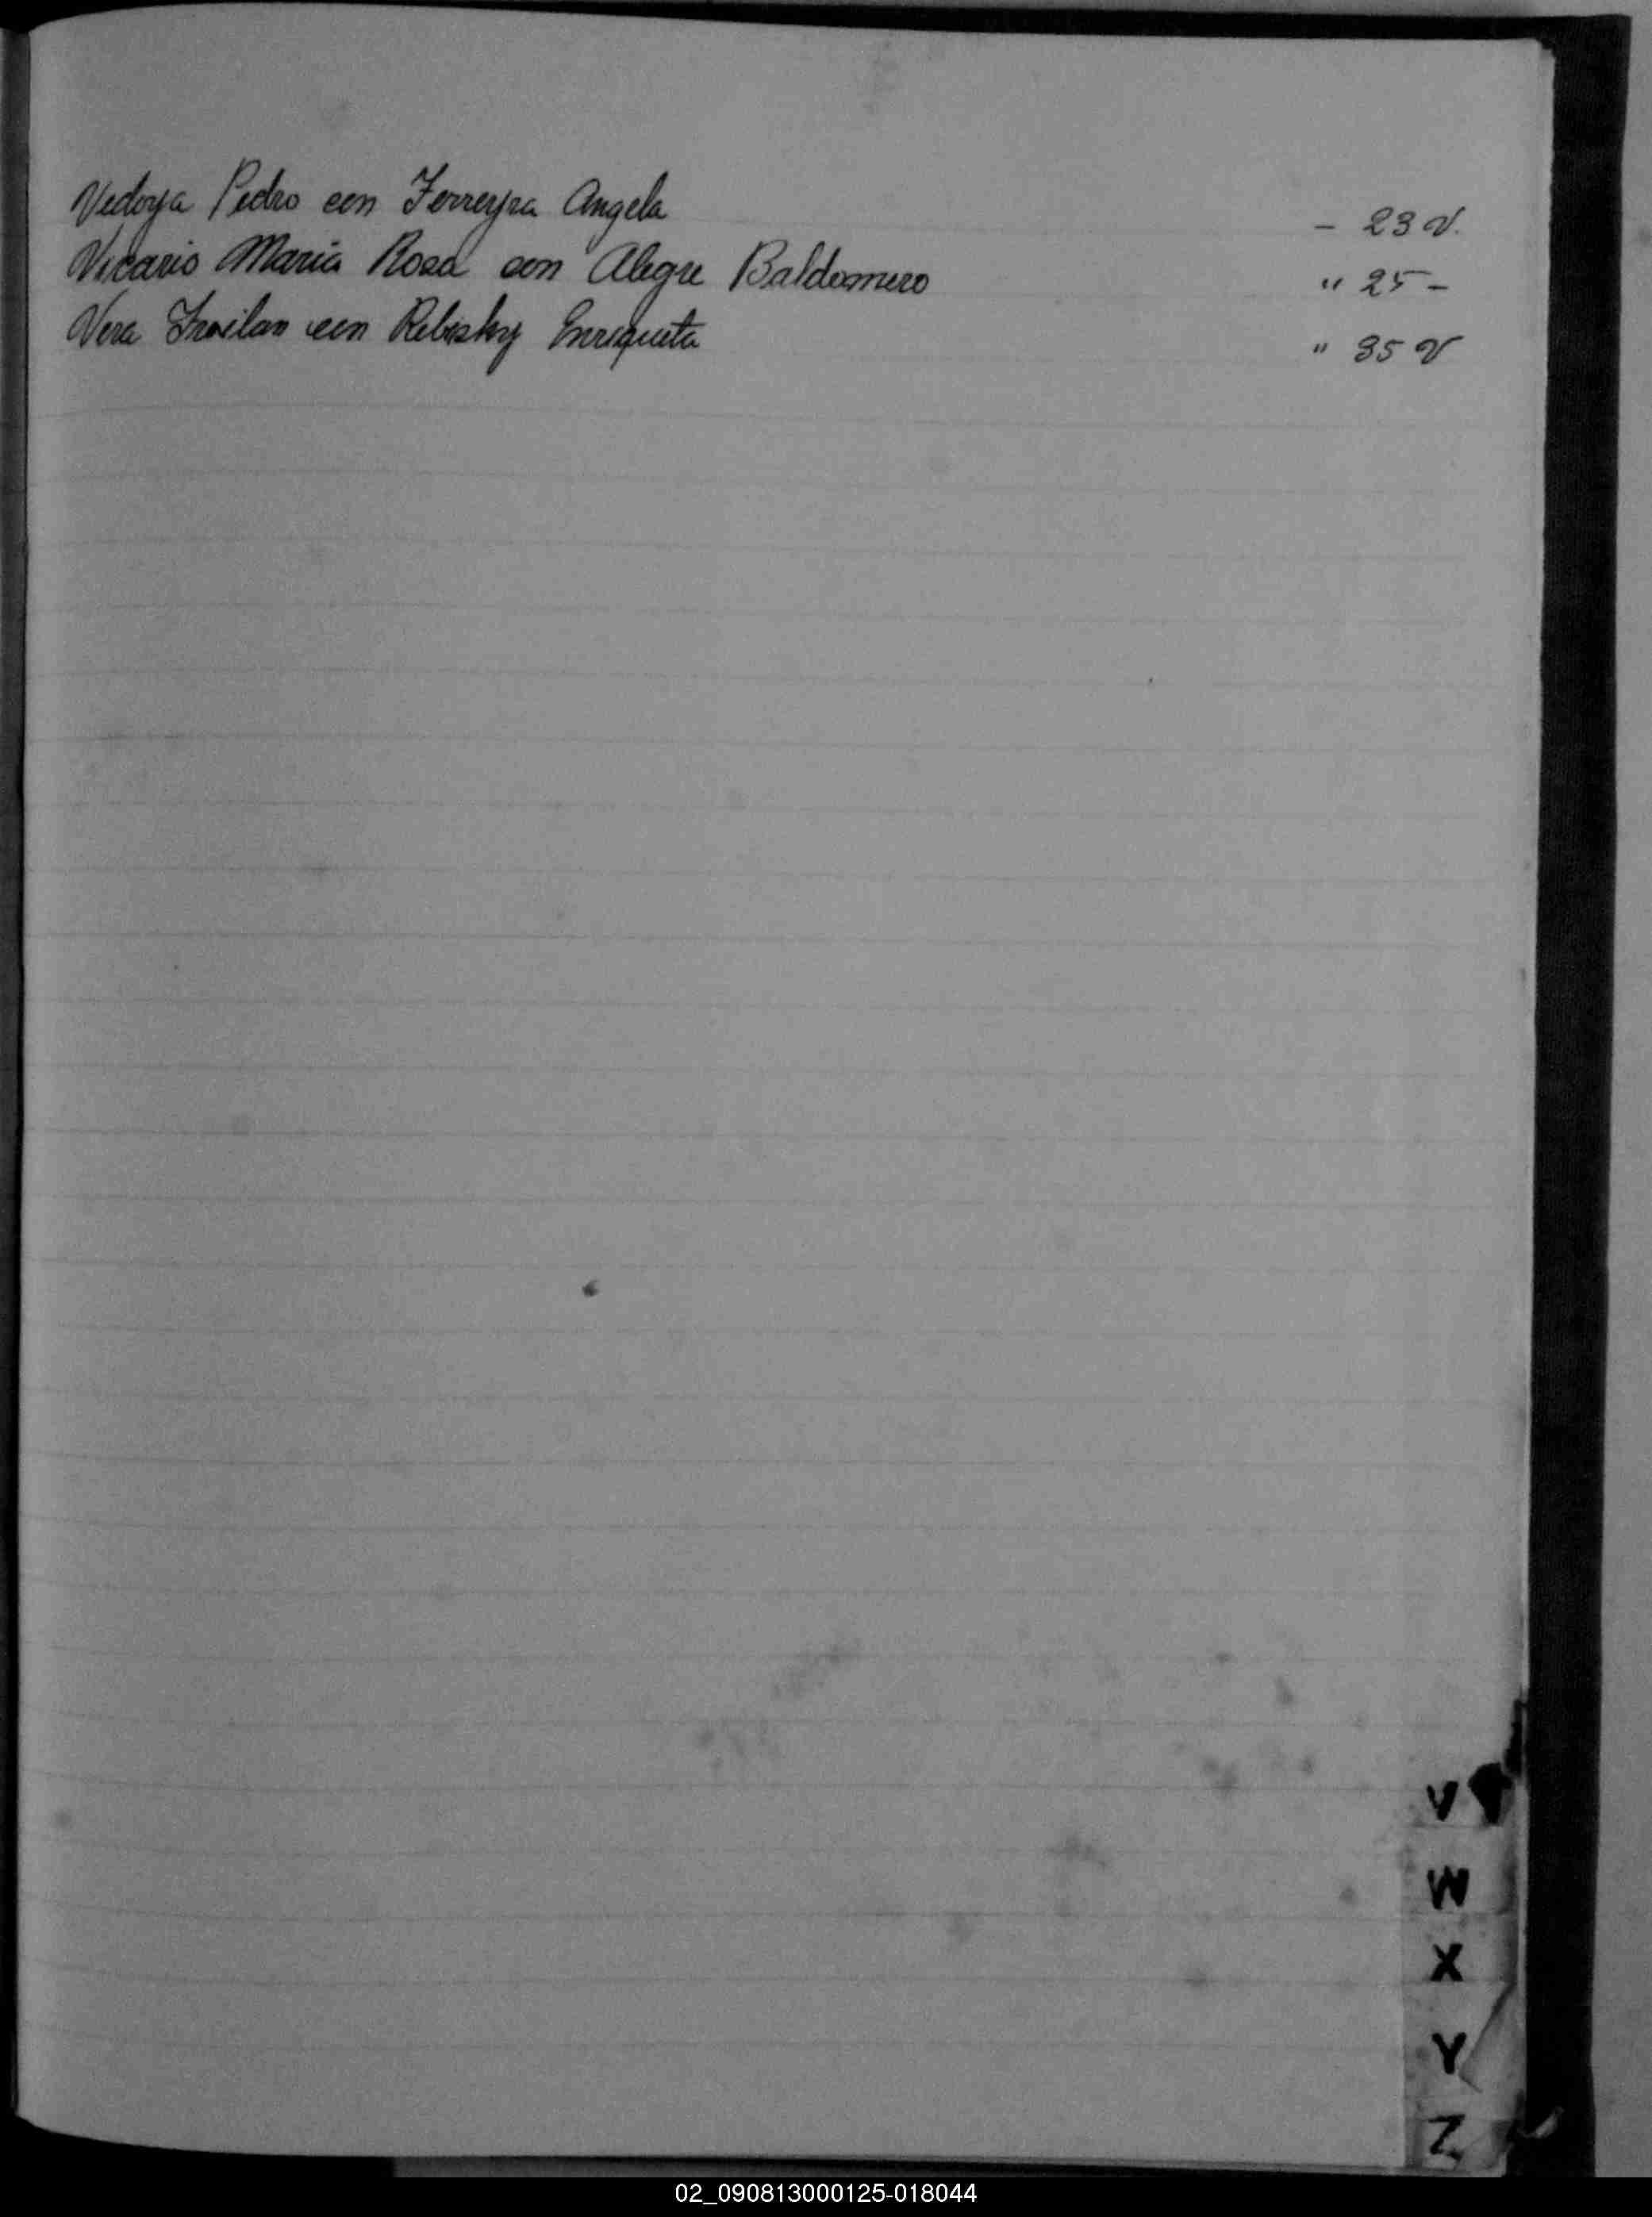 Vedoya Pedro con Ferreyra Angela - 23 V.
Vicario Maria Rosa con Alegre Baldomero " 25 -
Vera Froilan con Rebisky Enriqueta " 35 V
V
W
X
Y
Z
02_090813000125-018044